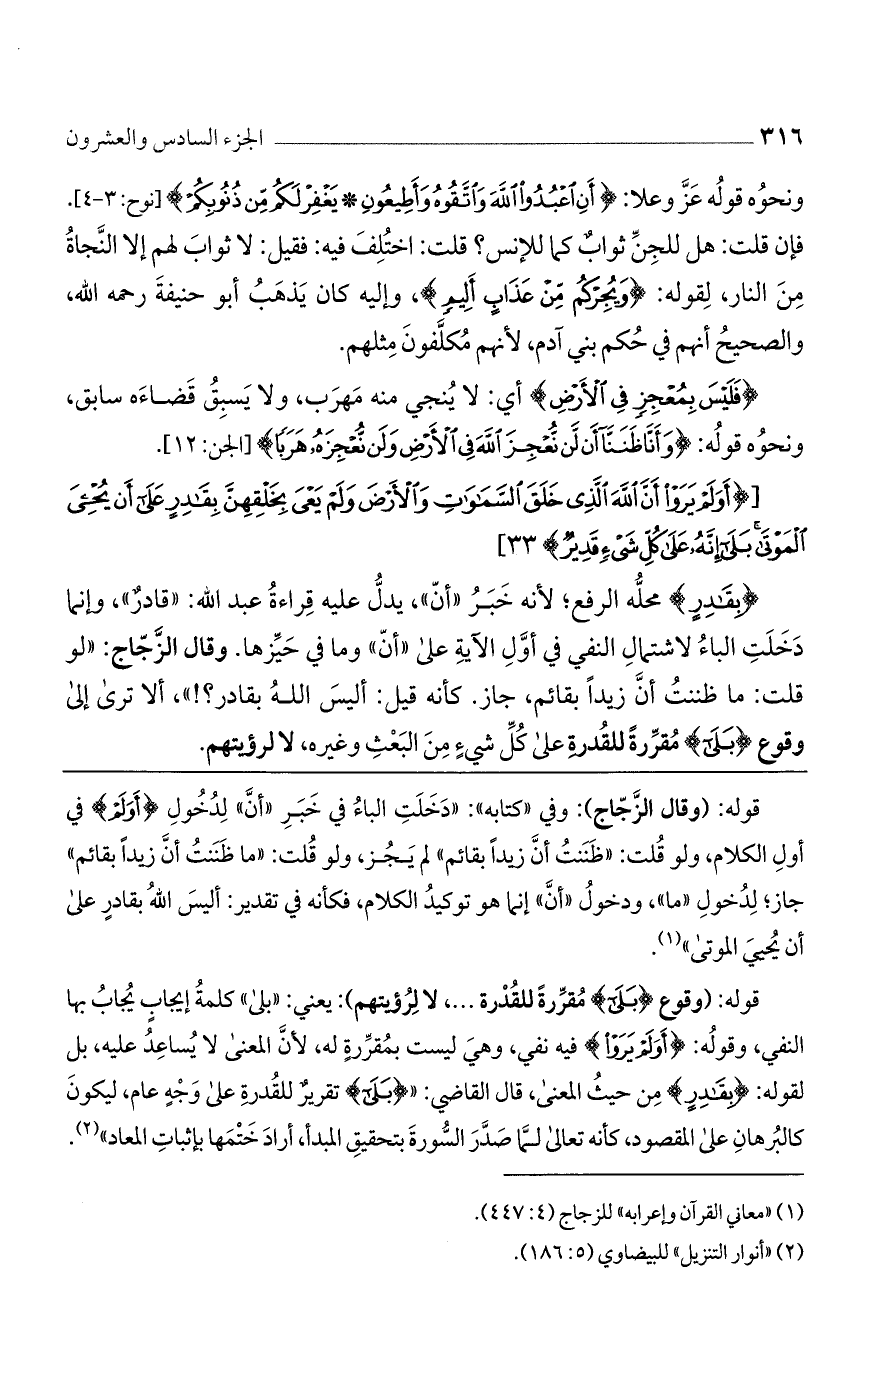 ٣١٦ الجزء السادس والعشرون
ونحوُه قولُه عَزَّ وعلا: ﴿أَنِ ٱعْبُدُوا۟ ٱللَّهَ وَٱتَّقُوهُ وَأَطِيعُونِ * يَغْفِرْ لَكُم مِّن ذُنُوبِكُمْ﴾ [نوح: ٣-٤].
فإن قلت: هل للجِنِّ ثوابٌ كما للإنس؟ قلت: اختُلِفَ فيه: فقيل: لا ثوابَ لهم إلا النَّجاةُ
مِنَ النار، لِقوله: ﴿وَيُجِرْكُم مِّنْ عَذَابٍ أَلِيمٍ﴾، وإليه كان يَذهَبُ أبو حنيفةَ رحمه الله،
والصحيحُ أنهم في حُكم بني آدم، لأنهم مُكلَّفونَ مِثلهم.
﴿فَلَيْسَ بِمُعْجِزٍ فِى ٱلْأَرْضِ﴾ أي: لا يُنجي منه مَهرَب، ولا يَسبِقُ قَضاءَه سابق،
ونحوُه قولُه: ﴿وَأَنَّا ظَنَنَّآ أَن لَّن نُّعْجِزَ ٱللَّهَ فِى ٱلْأَرْضِ وَلَن نُّعْجِزَهُۥ هَرَبًا﴾ [الجن: ١٢].
[﴿أَوَلَمْ يَرَوْا۟ أَنَّ ٱللَّهَ ٱلَّذِى خَلَقَ ٱلسَّمَٰوَٰتِ وَٱلْأَرْضَ وَلَمْ يَعْىَ بِخَلْقِهِنَّ بِقَٰدِرٍ عَلَىٰٓ أَن يُحْۦِىَ
ٱلْمَوْتَىٰ ۚ بَلَىٰٓ إِنَّهُۥ عَلَىٰ كُلِّ شَىْءٍ قَدِيرٌ﴾ ٣٣]
﴿بِقَٰدِرٍ﴾ محلُّه الرفع؛ لأنه خَبَرُ «أنّ»، يدلُّ عليه قِراءةُ عبد الله: «قادرٌ»، وإنما
دَخَلَتِ الباءُ لاشتمالِ النفي في أوَّلِ الآيةِ علىٰ «أنّ» وما في حَيِّزها. وقال الزَّجّاج: «لو
قلت: ما ظننتُ أنَّ زيداً بقائم، جاز. كأنه قيل: أليسَ اللهُ بقادر؟!»، ألا ترىٰ إلىٰ
وقوع ﴿بَلَىٰٓ﴾ مُقرِّرةً للقُدرةِ علىٰ كُلِّ شيءٍ مِنَ البَعْثِ وغيره، لا لرؤيتهم.
قوله: (وقال الزَّجّاج): وفي «كتابه»: «دَخَلَتِ الباءُ في خَبَرِ «أنَّ» لِدُخُولِ ﴿أَوَلَمْ﴾ في
أولِ الكلام، ولو قُلت: «ظَنَنتُ أنَّ زيداً بقائم» لم يَجُز، ولو قُلت: «ما ظَنَنتُ أنَّ زيداً بقائم»
جاز؛ لِدُخولِ «ما»، ودخولُ «أنَّ» إنما هو توكيدُ الكلام، فكأنه في تقدير: أليسَ اللهُ بقادرٍ علىٰ
أن يُحييَ الموتىٰ»(١).
قوله: (وقوع ﴿بَلَىٰٓ﴾ مُقرِّرةً للقُدْرة ...، لا لِرُؤيتهم): يعني: «بلىٰ» كلمةُ إيجابٍ يُجابُ بها
النفي، وقولُه: ﴿أَوَلَمْ يَرَوْا۟﴾ فيه نفي، وهيَ ليست بمُقرِّرةٍ له، لأنَّ المعنىٰ لا يُساعِدُ عليه، بل
لقوله: ﴿بِقَٰدِرٍ﴾ مِن حيثُ المعنىٰ، قال القاضي: «﴿بَلَىٰٓ﴾ تقريرٌ للقُدرةِ علىٰ وَجْهٍ عام، ليكونَ
كالبُرهانِ علىٰ المقصود، كأنه تعالىٰ لـمَّا صَدَّرَ السُّورةَ بتحقيقِ المبدأ، أرادَ خَتْمَها بإثباتِ المعاد»(٢).
(١) «معاني القرآن وإعرابه» للزجاج (٤: ٤٤٧).
(٢) «أنوار التنزيل» للبيضاوي (٥: ١٨٦).